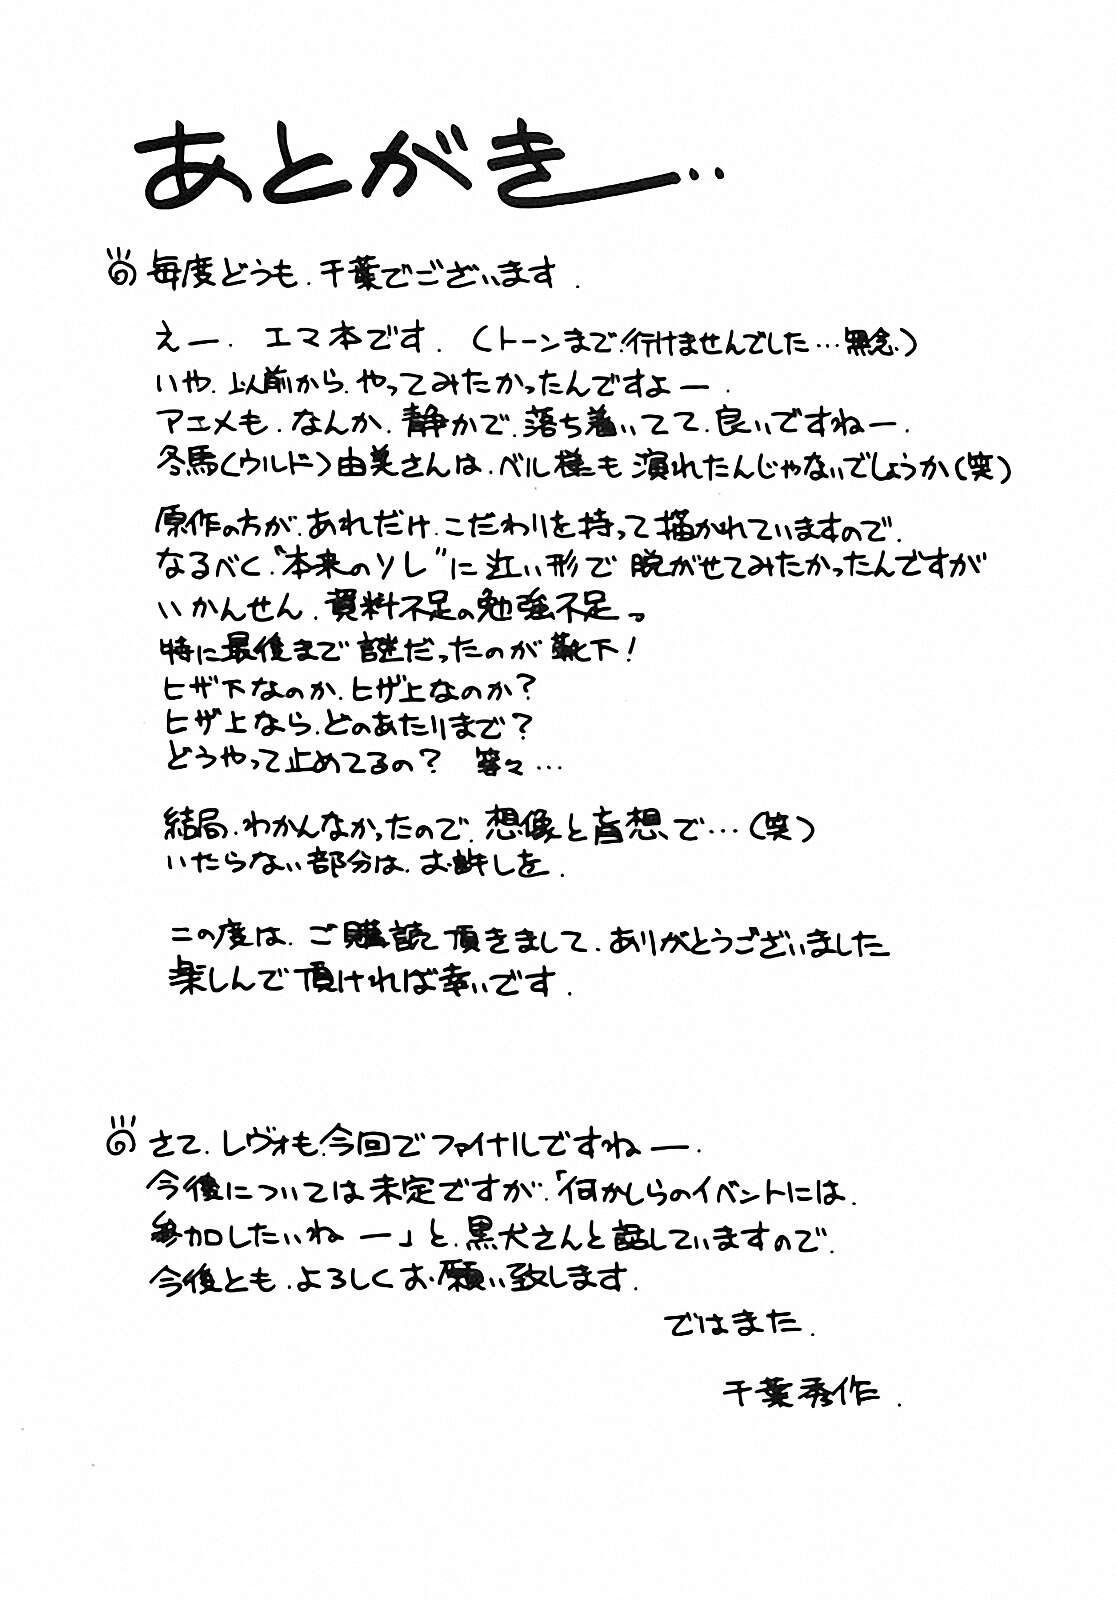 あとがき…
毎度どうも.千葉でございます.
えー.エマ本です.(トーンまで.行けませんでした…無念.)
いや.以前から.やってみたかったんですよー.
アニメも.なんか.静かで.落ち着いてて.良いですねー.
冬馬(ウルド)由美さんは.ベル様も演れたんじゃないでしょうか(笑)
原作の方が.あれだけ.こだわりを持って描かれていますので.
なるべく.“本来のソレ”に近い形で脱がせてみたかったんですが
いかんせん.資料不足の勉強不足っ
特に最後まで謎だったのが靴下!
ヒザ下なのか.ヒザ上なのか?
ヒザ上なら.どのあたりまで?
どうやって止めてるの? 等々…
結局.わかんなかったので.想像と妄想.で…(笑)
いたらない部分は.お許しを.
この度は.ご購読頂きまして.ありがとうございました
楽しんで頂ければ幸いです.
さて.レヴォも.今回でファイナルですねー.
今後については未定ですが.「何かしらのイベントには.
参加したいねー」と.黒犬さんと話していますので.
今後とも.よろしくお願い致します.
ではまた.
千葉秀作.